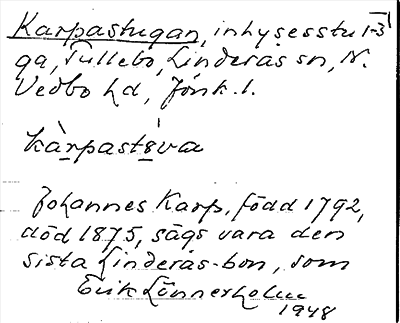 Karpastugan, inhysesstu 1-3
ga, Tullebo, Linderås sn, N.
Vedbo hd, Jönk. l.
kàrpastèva
Johannes Karp, född 1792,
död 1875, sägs vara den
sista Linderås-bon, som
Erik Lönnerholm
1948